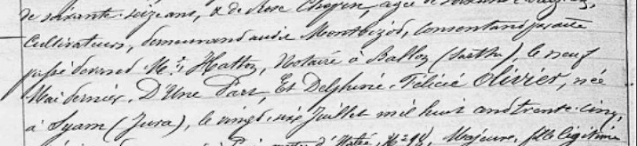 de soixante-seize ans, & de Rose Chopin, agée de soixante
Cultivateurs, demeurand audit Montbizot, consentand par acte
passé devand Me Hatton, Notaire à Ballon (Sarthe) le neuf
Mai dernier. D'Une Part, Et Delphine-Félicie Olivier, née
à Syam (Jura), le vingt-six Juillet mil huit cent trente-cinq,
Majeure, fille légitime